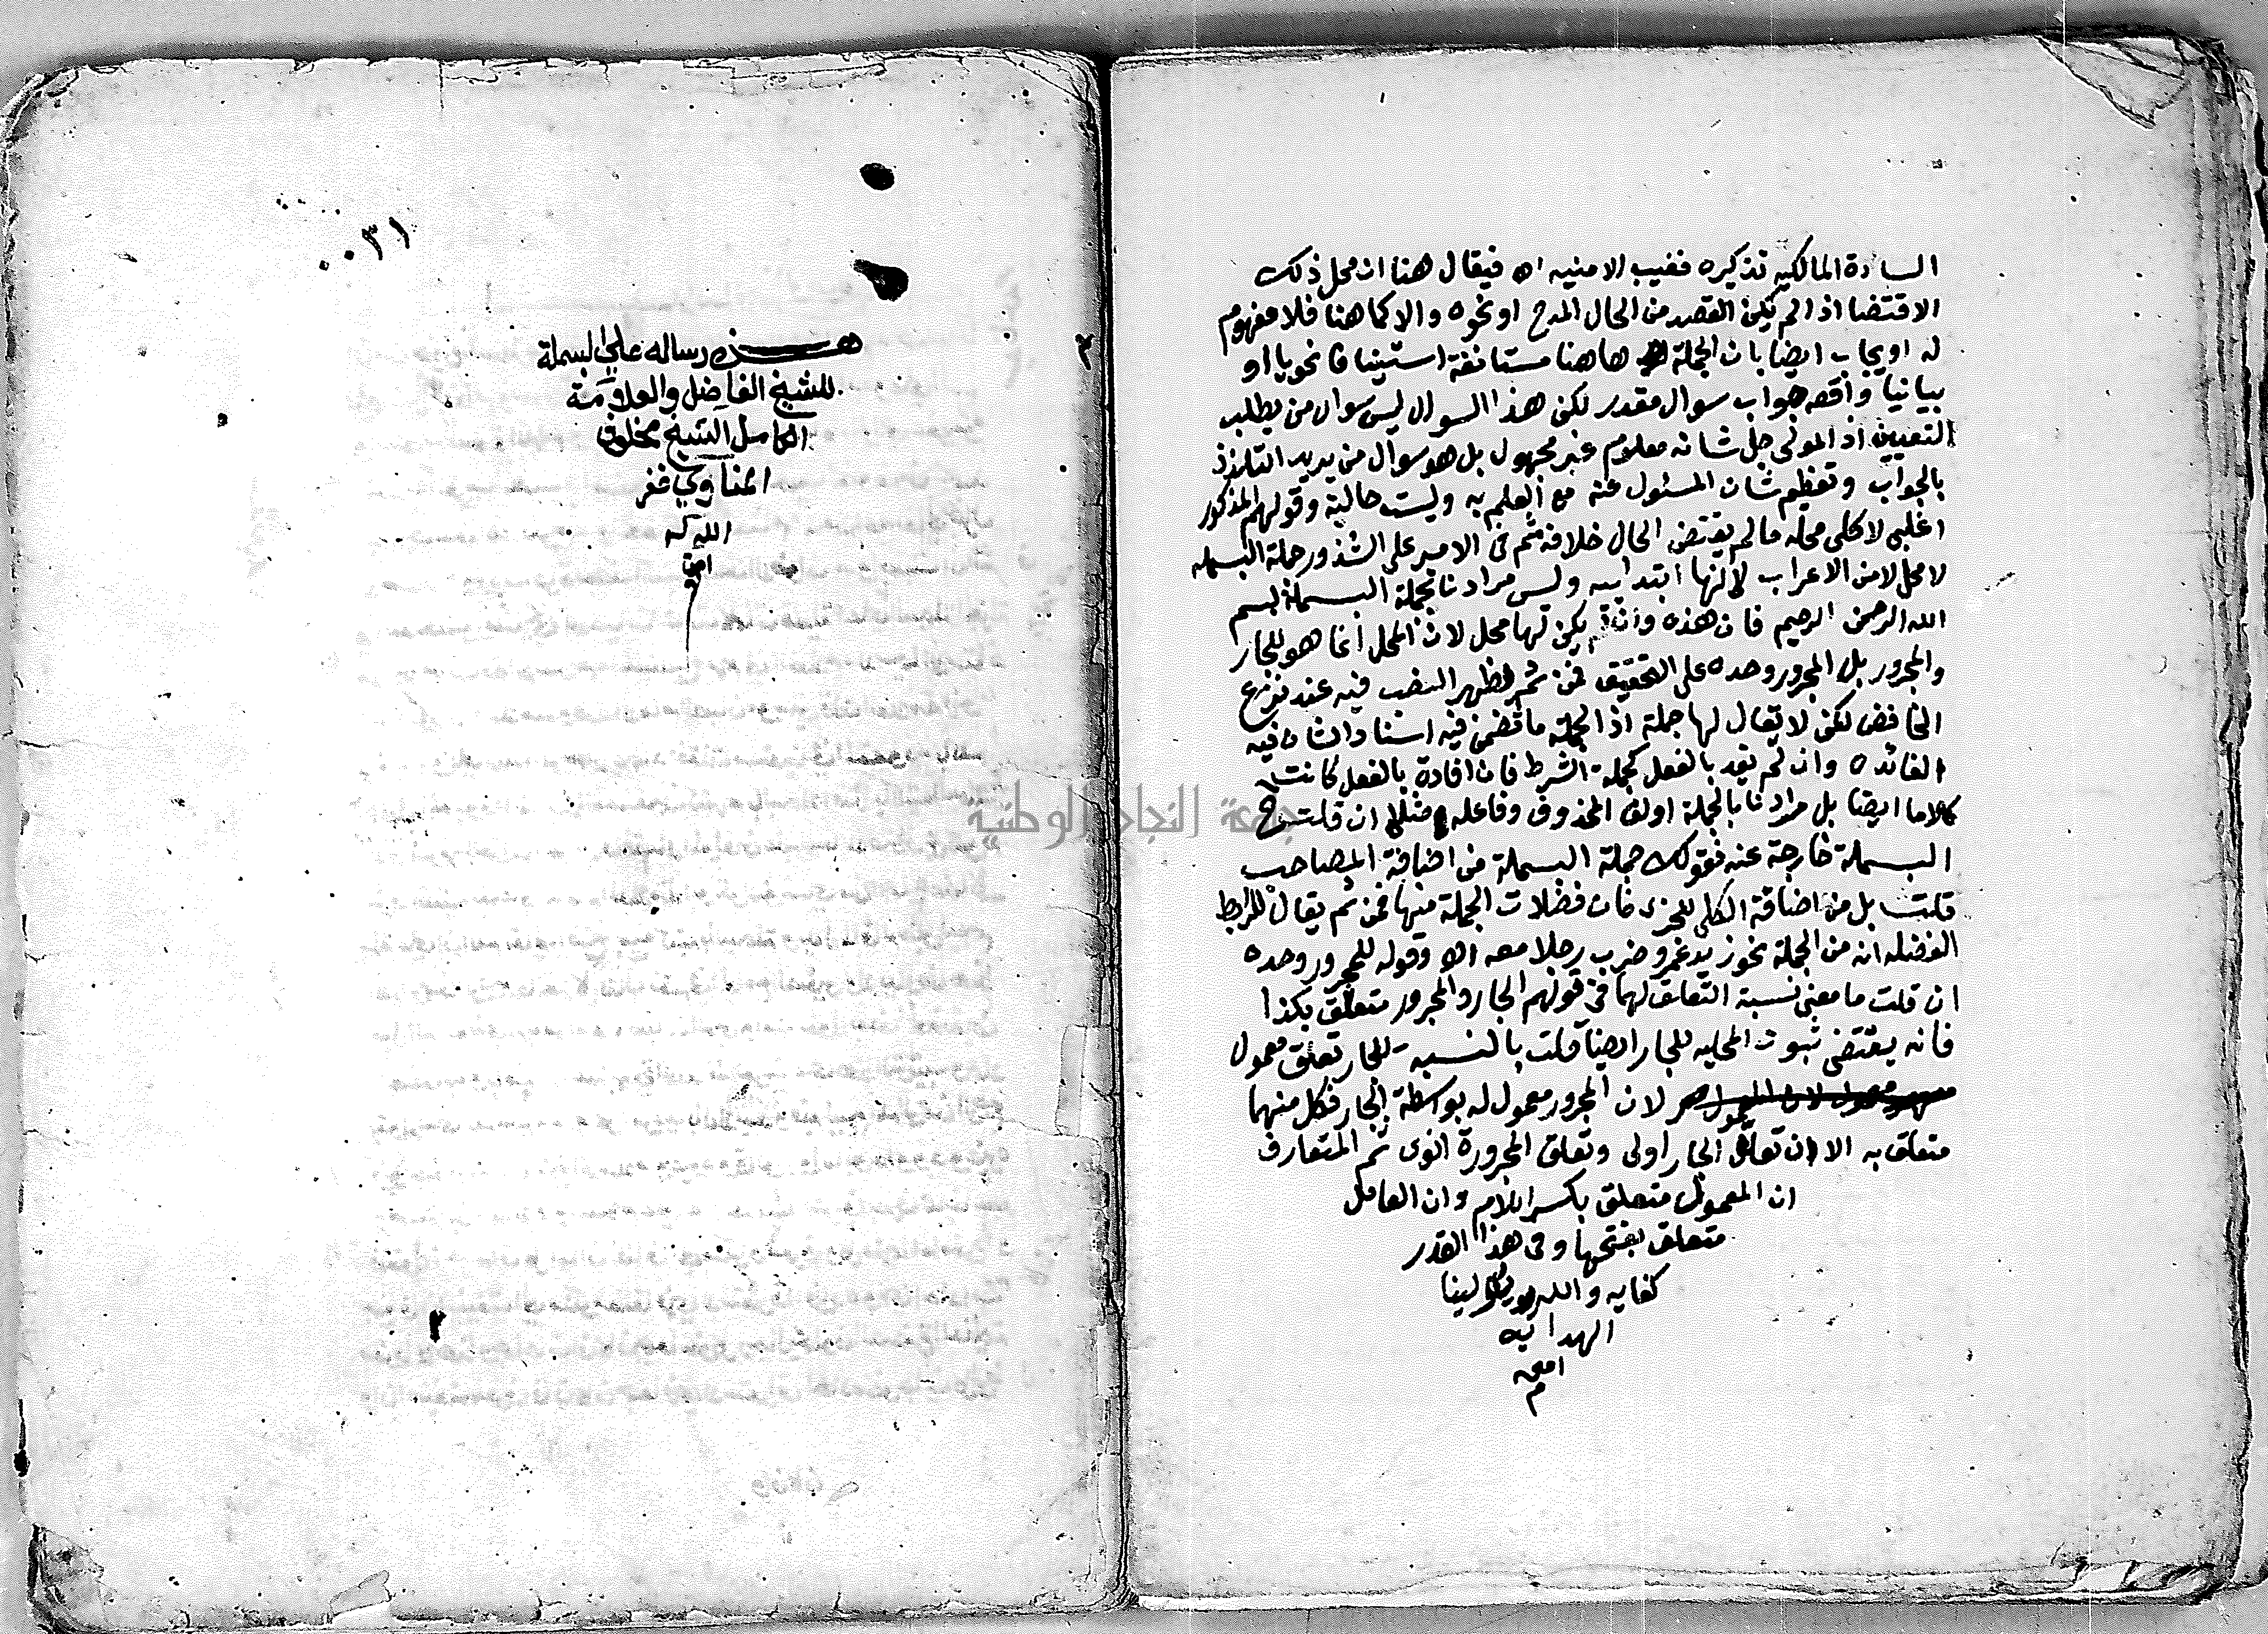 السادة المالكيه تذكيره فغيب الامنيه اه فيقال هنا ان محل ذلك
الاقتضا اذا لم يكن القصد من الحال المدح او نحوه والا كما هنا فلا مفهوم
له او يجاب ايضا بان الجملة هاهنا مستانفة استينافا نحويا او
بيانيا واقعه جواب سوال مقدر لكن هذا السوال ليس سوال من يطلب
التعيين اذ المولى جل شانه معلوم غير مجهول بل هو سوال من يريد التلذذ
بالجواب وتعظيم شان المسئول عنه مع العلم به وليست حالية وقولهم المذكور
اغلبي لا كلي محله ما لم يقتض الحال خلافه ثم في الامير على الشذور جملة البسمله
لا محل لا من الاعراب لانها ابتداييه وليس مرادنا بجملة البسملة بسم
الله الرحمن الرحيم فان هذه وان يكن لها محل لان المحل انما هو للجار
والمجرور بل المجرور وحده على التحقيق فمن ثم يظهر النصب فيه عند نزع
الخافض لكن لا يقال لها جملة اذ الجملة ما تضمن فيه اسنادا لشان فيه
الفائده وان لم تفد بالفعل كجملة الشرط فان افادة بالفعل كانت
كلاما ايضا بل مرادنا بالجملة اولف المحذوف وفاعله مثلا ان قلت ح
البسملة خارجة عنه فقولك جملة البسملة من اضافة المصاحب
قلت بل من اضافة الكلي للجزء فان فضلات الجملة منها فمن ثم يقال للرابط
الفضله انه من الجملة نحو زيد عمرو ضرب رجلا معه اه وقوله للمجرور وحده
ان قلت ما معنى نسبة التعلق لهما في قولهم الجار والمجرور متعلق بكذا
فانه يقتضي ثبوت المحليه للجار ايضا قلت بالنسبة للجار تعلق معمول
لان المجرور معمول له بواسطة الجار فكل منهما
متعلق به الا ان تعلق الجار اولى وتعلق المجرورة اقوى ثم المتعارف
ان المعمول متعلق بكسر اللام وان العامل
متعلق بفتحها وفي هذا القدر
كفايه والله لينا
الهدايه
امين
م
٠٠٣١
هذه رساله على البسملة
للشيخ الفاضل والعلامة
الكامل الشيخ مخلوف
المناوي غفر
الله له
امين
٣
جامعة النجاح الوطنية